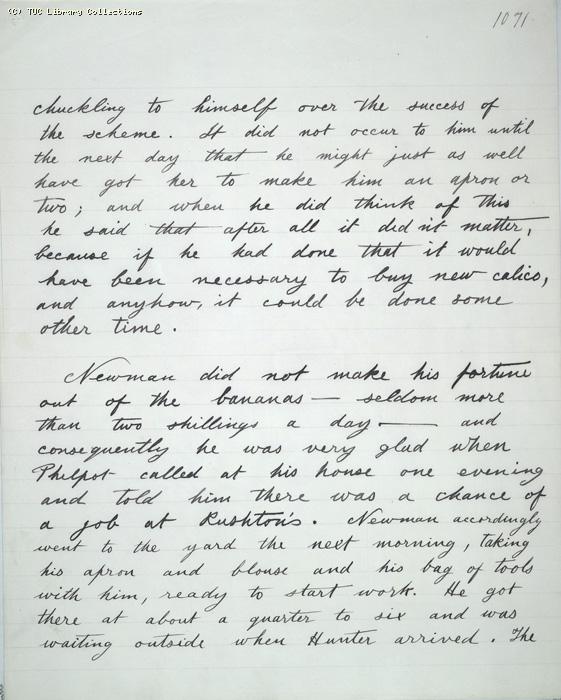 (C) TUC Library Collections
1071.
chuckling to himself over the success of
the scheme. It did not occur to him until
the next day that he might just as well
have got her to make him an apron or
two; and when he did think of this
he said that after all it didn't matter,
because if he had done that it would
have been necessary to buy new calico,
and anyhow, it could be done some
other time.
Newman did not make his fortune
out of the bananas — seldom more
than two shillings a day — and
consequently he was very glad when
Philpot called at his house one evening
and told him there was a chance of
a job at Rushton's. Newman accordingly
went to the yard the next morning, taking
his apron and blouse and his bag of tools
with him, ready to start work. He got
there at about a quarter to six and was
waiting outside when Hunter arrived. The